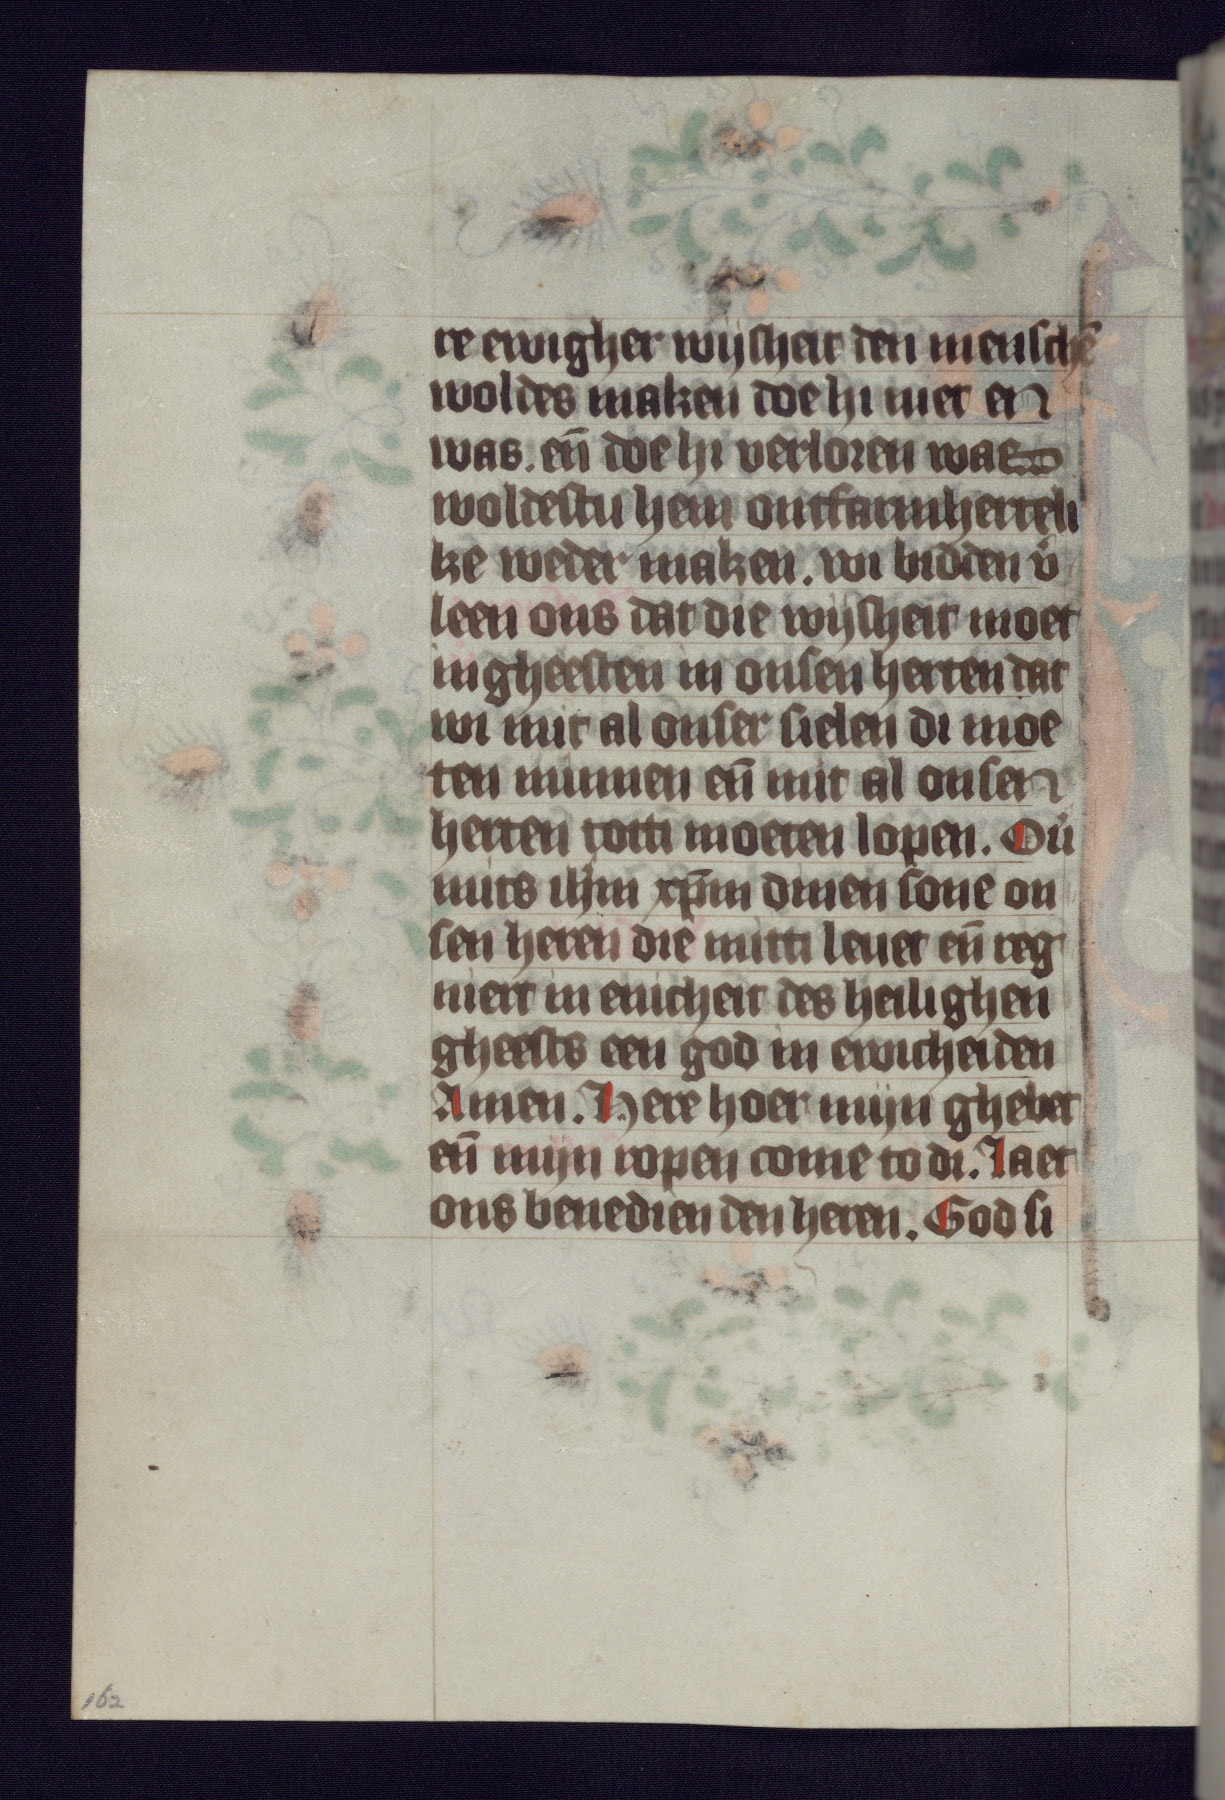 re ewigher wijsheit den menschē
woldes maken doe hi niet en
was. eñ doe hi verloren was
woldestu hem ontfarmherteli
ke weder maken. wi bidden v̓
leen ons dat die wijsheit moet
ingheesten in onsen herten dat
wi mit al onser sielen di moe
ten minnen eñ mit al onsen
herten totti moeten lopen. Ov̓
mits ihm xp̄m dinen sone on
sen heren die mitti leuet eñ reg
niert in enicheit des heilighen
gheests een god in ewicheiden
Amen. Here hoer mijn ghebet
eñ mijn ropen come to di. Laet
ons benedien den heren. God si
162